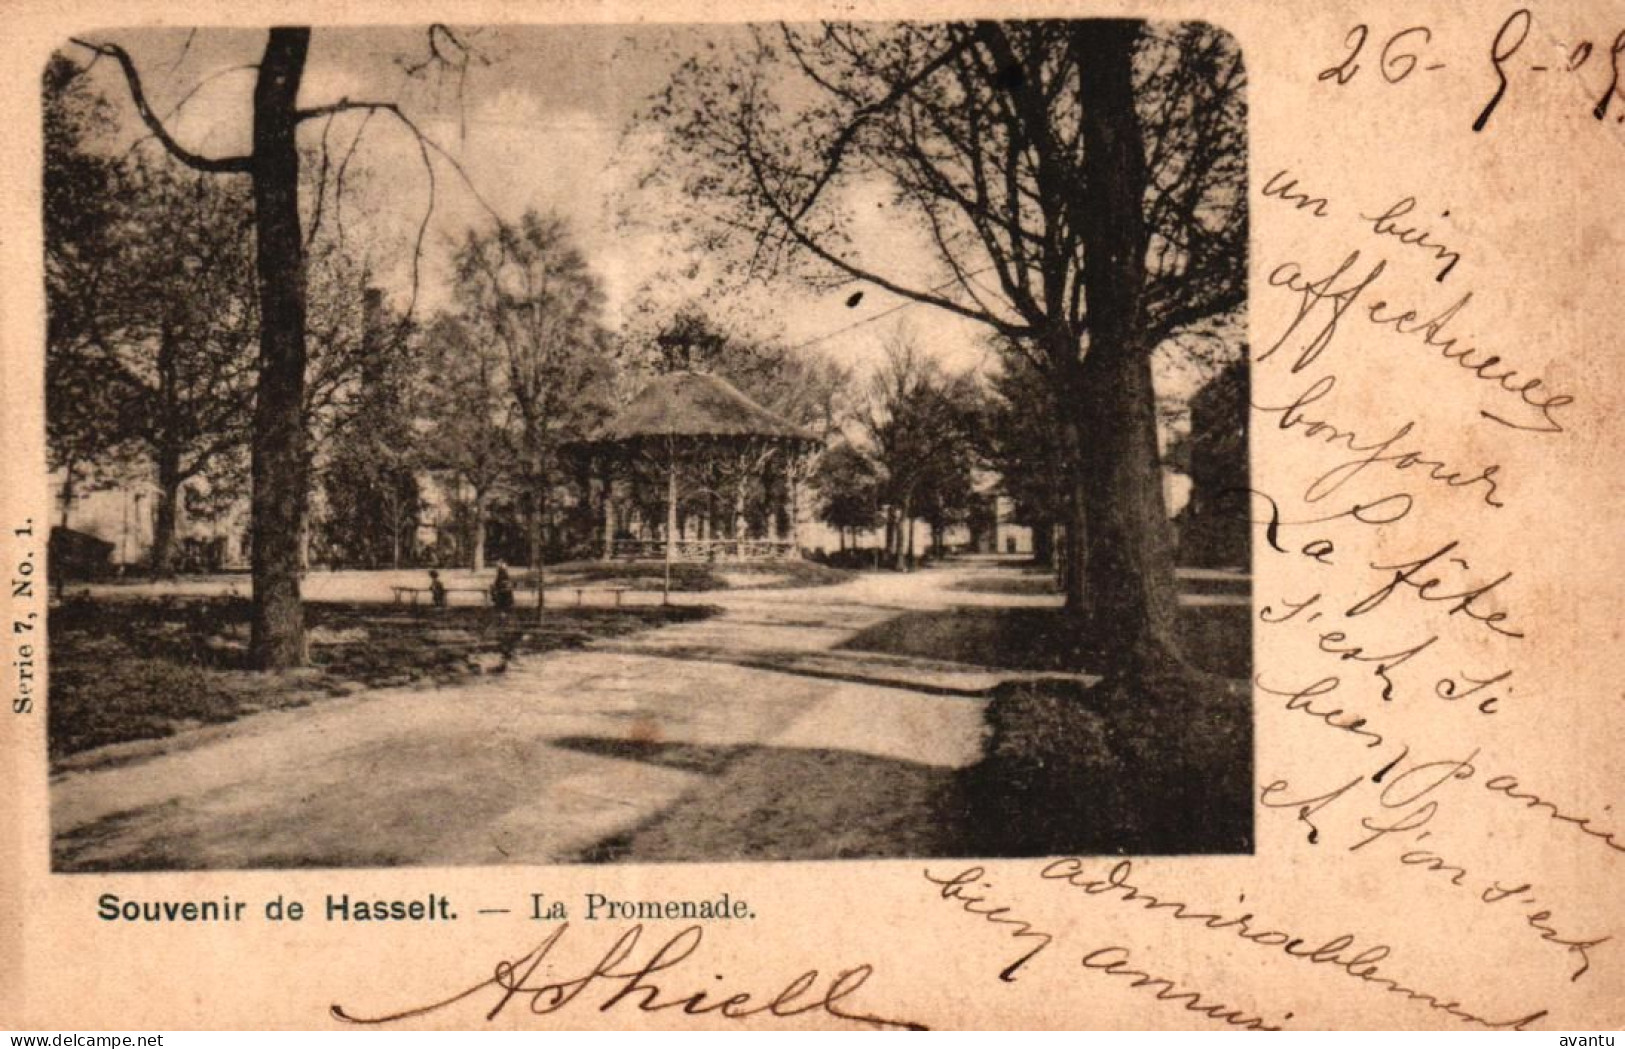 26-9-05
un bien
affectueux
bonjour
La fête
s'est si
bien
et l'on s'est
admirablement
bien amusé
Serie 7, No. 1.
Souvenir de Hasselt. — La Promenade.
AShiell
avantu